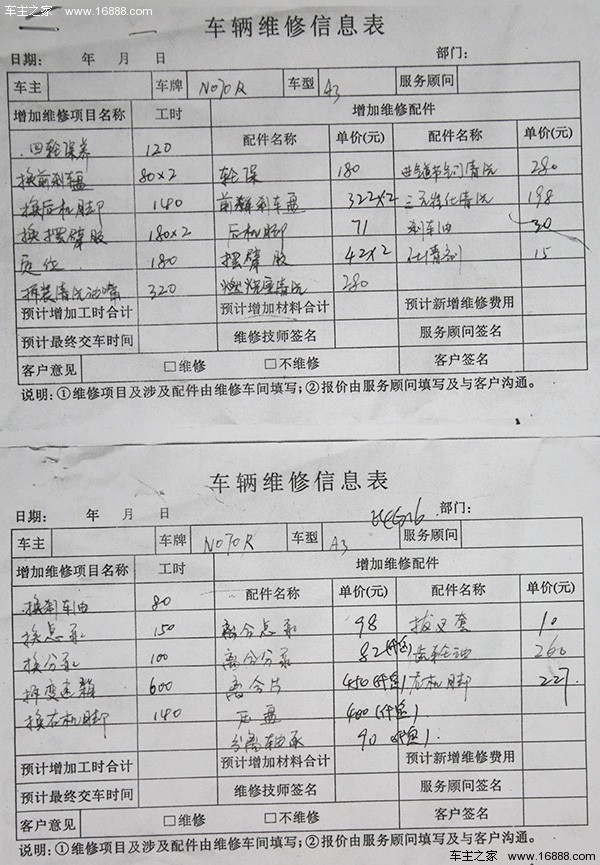 车主之家 www.16888.com
车辆维修信息表
日期: 年 月 日 部门:
车主 车牌 N070R 车型 A3 服务顾问
增加维修项目名称 工时 增加维修配件
配件名称 单价(元) 配件名称 单价(元)
四轮保养 120
换前刹车盘 80×2 轮保 180 进气道节气门清洗 280
换后机脚 140 前刹车盘 322×2 三元催化清洗 198
换摆臂胶 180×2 后机脚 71 刹车油 30
定位 180 摆臂胶 42×2 15
拆装清洗油嘴 320 燃烧室清洗 280
预计增加工时合计 预计增加材料合计 预计新增维修费用
预计最终交车时间 维修技师签名 服务顾问签名
客户意见 □维修 □不维修 客户签名
说明:①维修项目及涉及配件由维修车间填写;②报价由服务顾问填写及与客户沟通。
车辆维修信息表
日期: 年 月 日 部门:
车主 车牌 N070R 车型 A3 服务顾问
增加维修项目名称 工时 增加维修配件
配件名称 单价(元) 配件名称 单价(元)
换刹车油 80
换总泵 150 离合总泵 98 拔叉套 10
换分泵 100 离合分泵 82 齿轮油 260
拆变速箱 600 离合片 450 右机脚 227
换右机脚 140 压盘 400
分离轴承 90
预计增加工时合计 预计增加材料合计 预计新增维修费用
预计最终交车时间 维修技师签名 服务顾问签名
客户意见 □维修 □不维修 客户签名
说明:①维修项目及涉及配件由维修车间填写;②报价由服务顾问填写及与客户沟通。
车主之家 www.16888.com